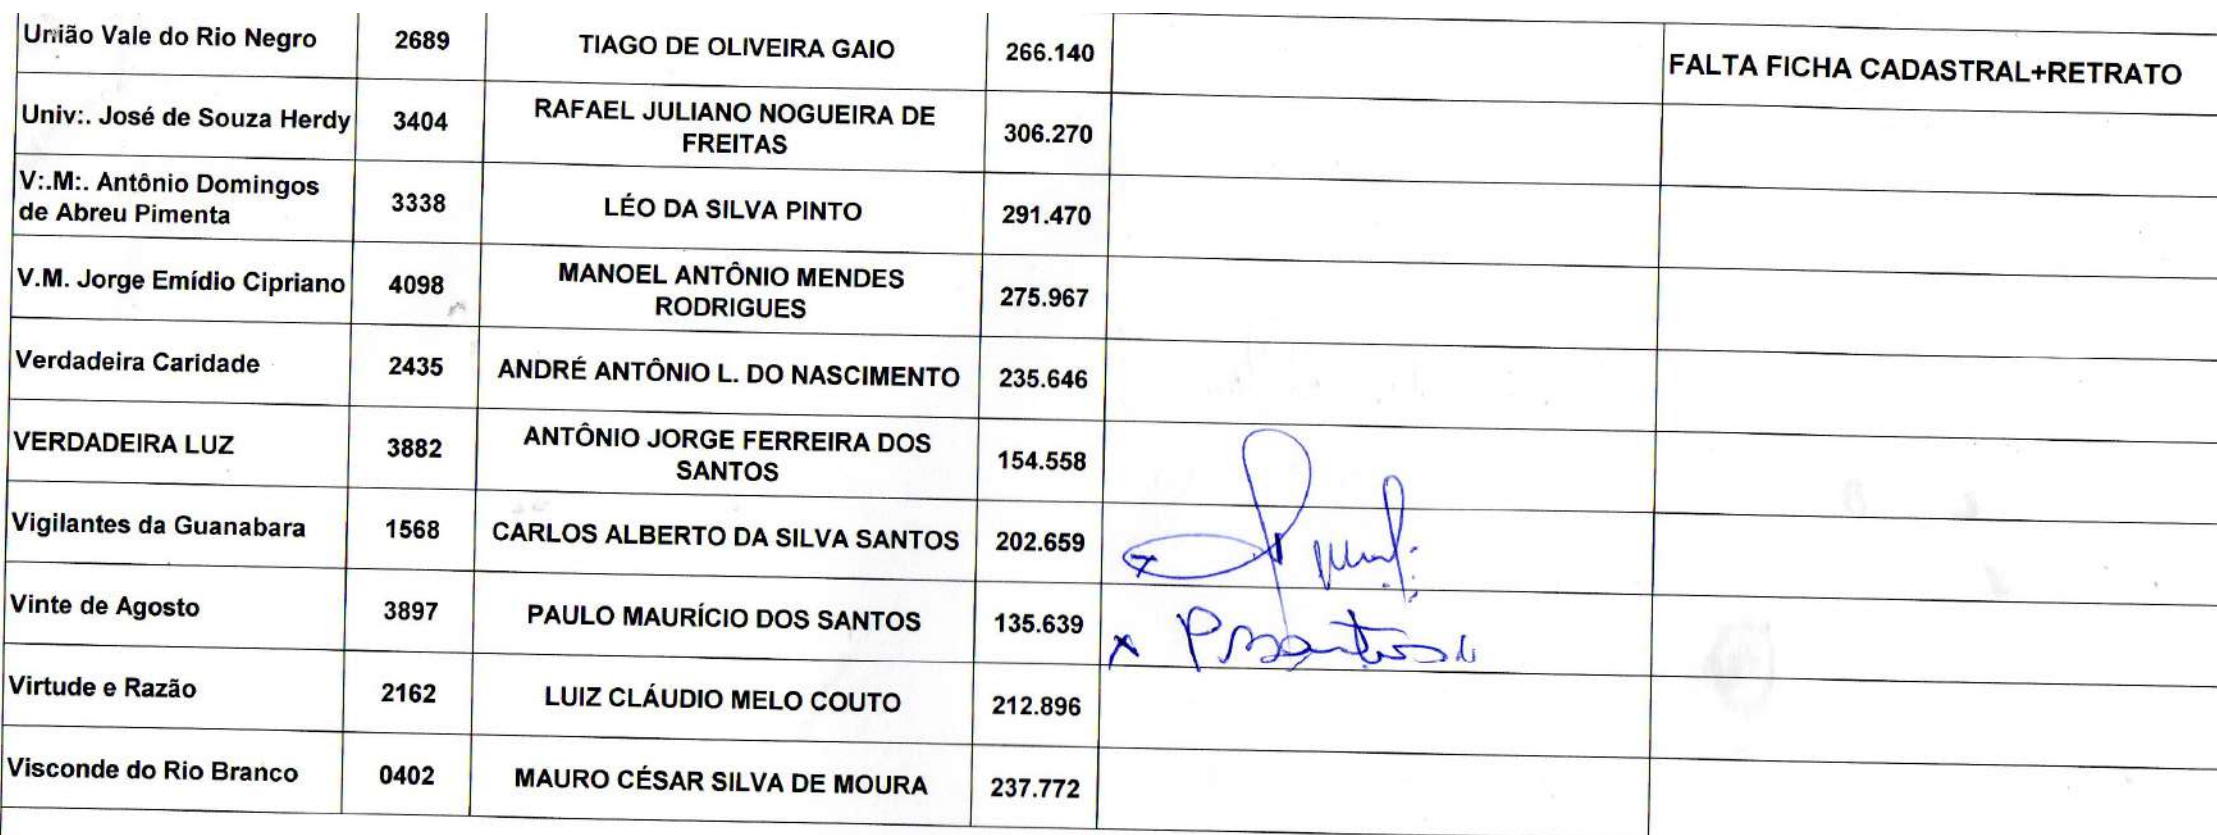 União Vale do Rio Negro 2689 TIAGO DE OLIVEIRA GAIO 266.140 FALTA FICHA CADASTRAL+RETRATO
Univ:. José de Souza Herdy 3404 RAFAEL JULIANO NOGUEIRA DE
FREITAS 306.270
V:.M:. Antônio Domingos
de Abreu Pimenta 3338 LÉO DA SILVA PINTO 291.470
V.M. Jorge Emídio Cipriano 4098 MANOEL ANTÔNIO MENDES
RODRIGUES 275.967
Verdadeira Caridade 2435 ANDRÉ ANTÔNIO L. DO NASCIMENTO 235.646
VERDADEIRA LUZ 3882 ANTÔNIO JORGE FERREIRA DOS
SANTOS 154.558
Vigilantes da Guanabara 1568 CARLOS ALBERTO DA SILVA SANTOS 202.659 x
Vinte de Agosto 3897 PAULO MAURÍCIO DOS SANTOS 135.639 x
Virtude e Razão 2162 LUIZ CLÁUDIO MELO COUTO 212.896
Visconde do Rio Branco 0402 MAURO CÉSAR SILVA DE MOURA 237.772